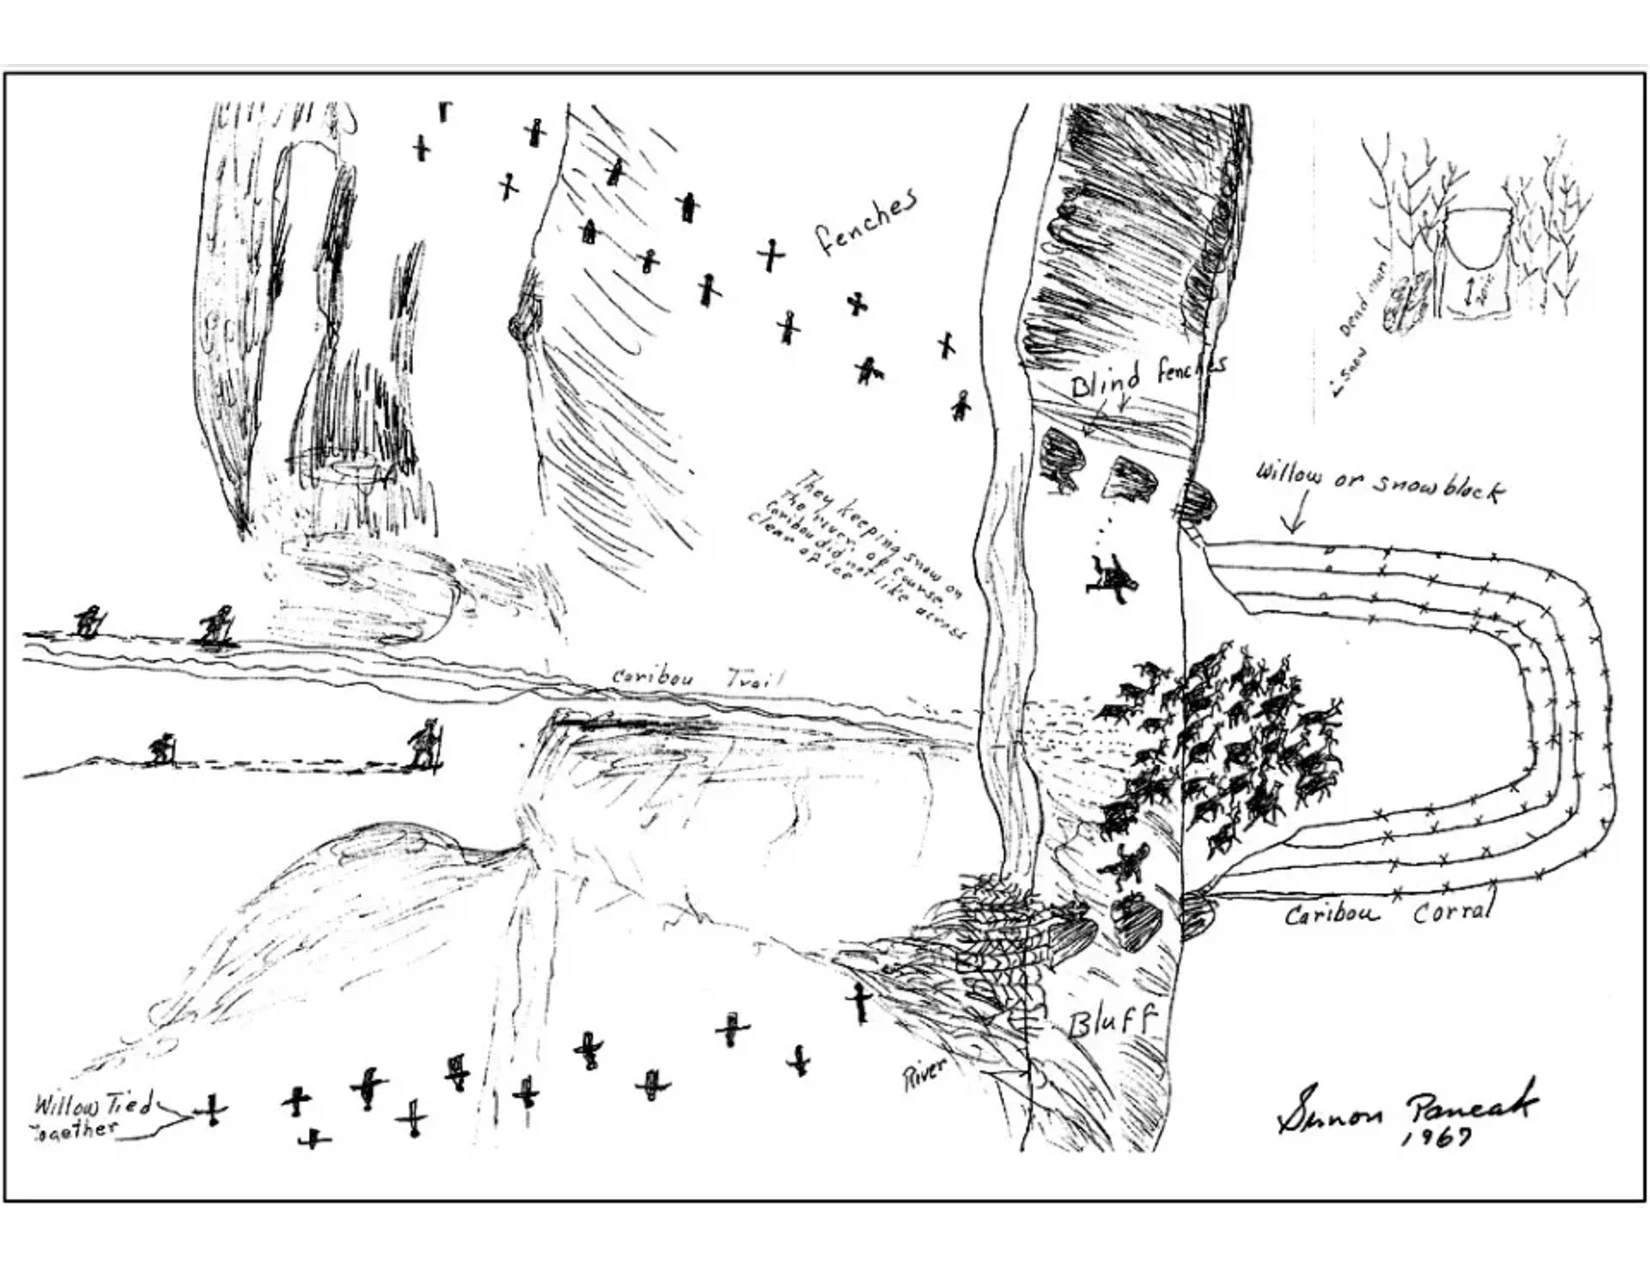 fenches
Dead man
Snow
Blind fenches
Willow or snow block
They keeping snow on
the river, of course,
Caribou did not like across
clear of ice
Caribou Trail
Caribou Corral
Bluff
River
Willow Tied
Together
Simon Paneak
1967